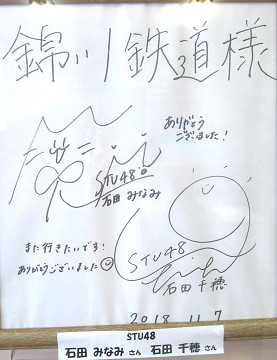 錦川鉄道様
ありがとう
ございました!
STU48
石田 みなみ
また行きたいです!
ありがとうございました
STU48
石田 千穂
2018. 11. 7
STU48
石田 みなみ さん 石田 千穂 さん